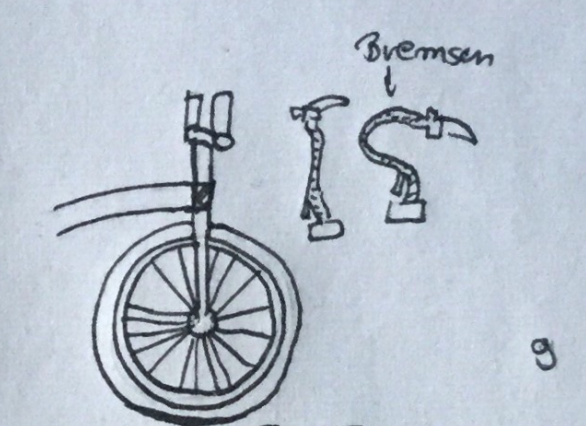 Bremsen
9